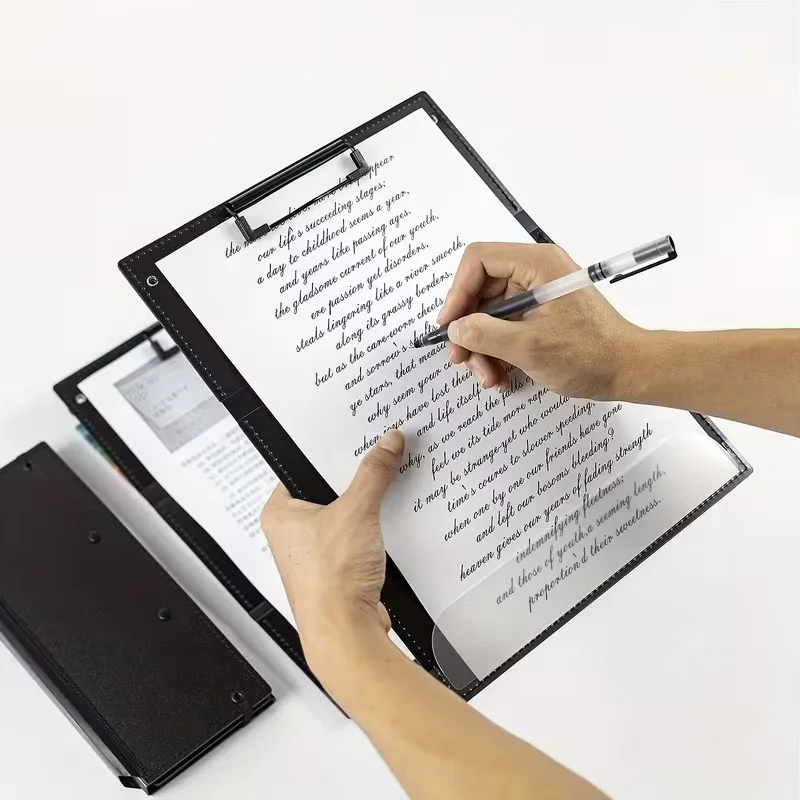 the more we live, more brief appear
our life's succeeding stages:
a day to childhood seems a year,
and years like passing ages.
the gladsome current of our youth,
ere passion yet disorders,
steals lingering like a river smooth,
along its grassy borders.
but as the care-worn cheeks
and sorrow's shafts
ye stars, that measure
why seem your
when joys have lost their
and life itself
why, as we reach the falls of
feel we its tide more rapid
it may be strange-yet who would
time's coures to slower speeding,
when one by one our friends have gone
and left our bosoms bleeding?
heaven gives our years of fading strength
indemnifying fleetness;
and those of youth,a seeming length,
proportion'd their sweetness.